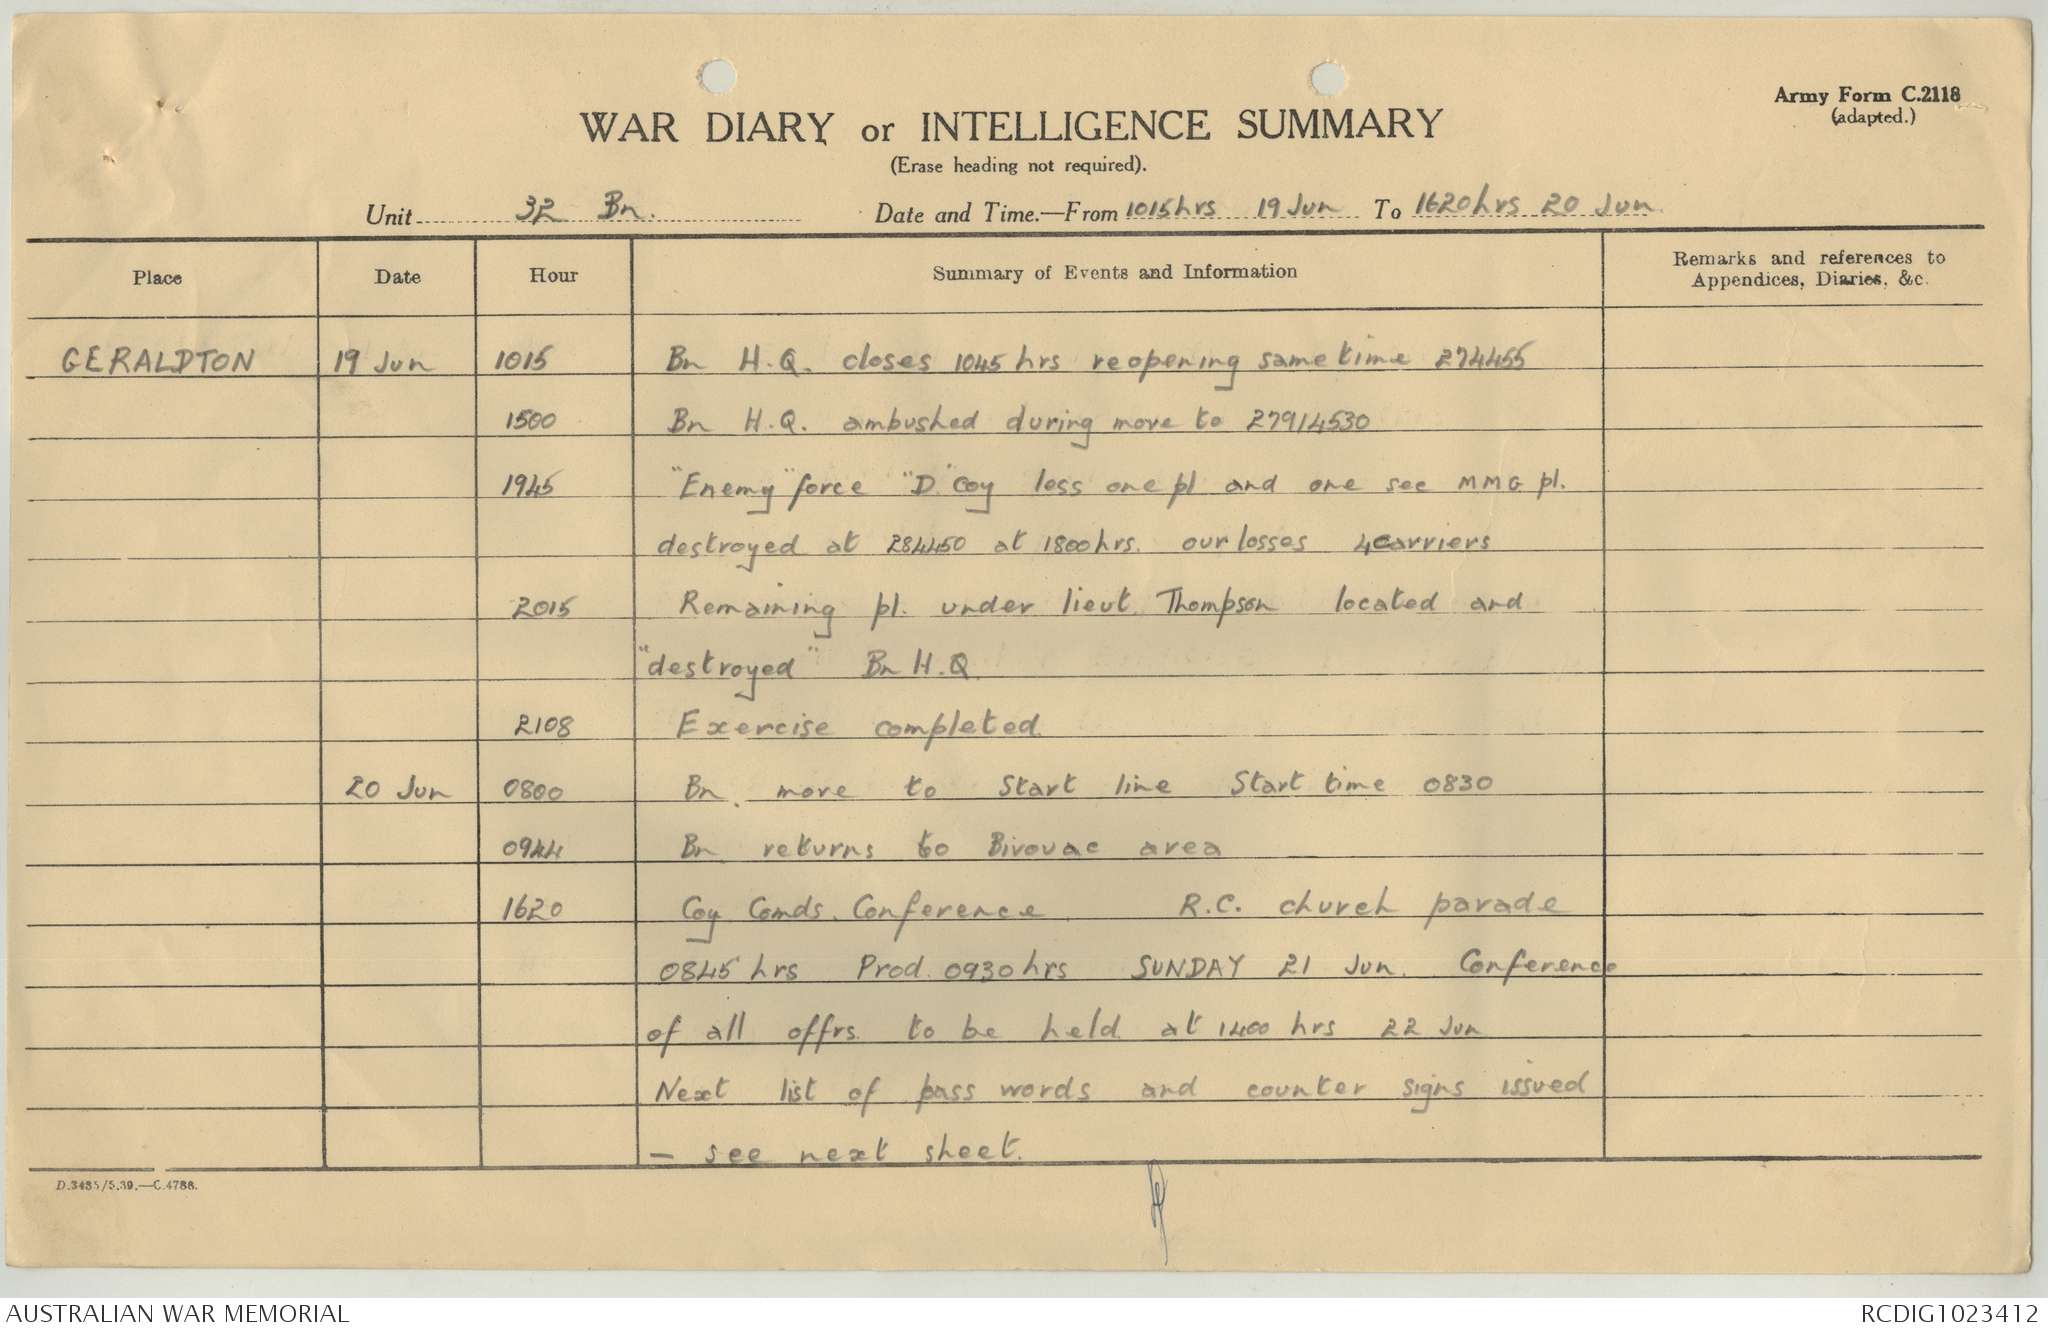 Army Form C.2118
(adapted.)
WAR DIARY or INTELLIGENCE SUMMARY
(Erase heading not required).
Unit 32 Bn. Date and Time.—From 1015hrs 19 Jun To 1620hrs 20 Jun
Place Date Hour Summary of Events and Information Remarks and references to
Appendices, Diaries, &c.
GERALDTON 19 Jun 1015 Bn H.Q. closes 1045 hrs reopening same time 274455
1500 Bn H.Q. ambushed during move to 27914530
1945 "Enemy" force "D" Coy less one pl and one sec MMG pl.
destroyed at 284450 at 1800hrs. our losses 4 carriers
2015 Remaining pl. under lieut. Thompson located and
"destroyed" Bn H.Q.
2108 Exercise completed.
20 Jun 0800 Bn. move to Start line Start time 0830
0944 Bn returns to Bivouac area
1620 Coy Comds. Conference R.C. church parade
0845 hrs Prod. 0930 hrs SUNDAY 21 Jun. Conference
of all offrs. to be held at 1400 hrs 22 Jun
Next list of pass words and counter signs issued
— see next sheet.
D.3485/5.39.—C.4788.
AUSTRALIAN WAR MEMORIAL RCDIG1023412